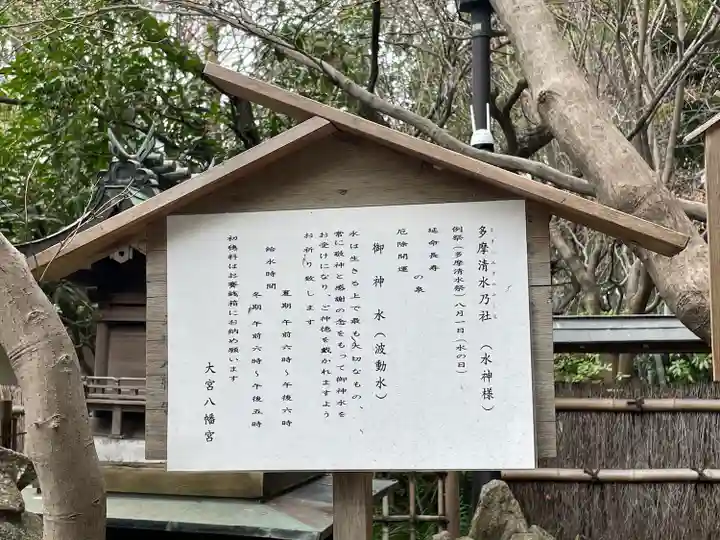 多摩清水乃社（水神様）
たましみずのやしろ
例祭（多摩清水祭）八月一日（水の日）
延命長寿
の泉
厄除開運
御神水（波動水）
水は生きる上で最も大切なもの、
常に敬神と感謝の念をもって御神水を
お受けになり、ご神徳を戴かれますよう
お祈り致します
夏期 午前六時〜午後六時
給水時間
冬期 午前六時〜午後五時
初穂料はお賽銭箱にお納め願います
大宮八幡宮